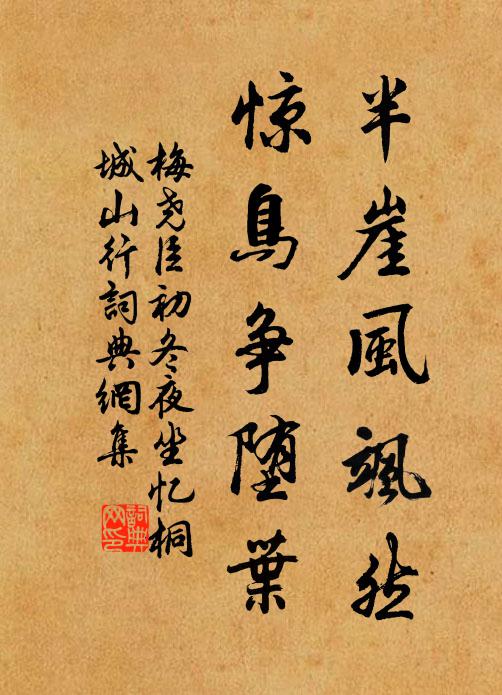 半崖風颯然
惊鳥争堕葉
梅尭臣初冬夜坐忆桐
城山行詞典網集
詞典网印